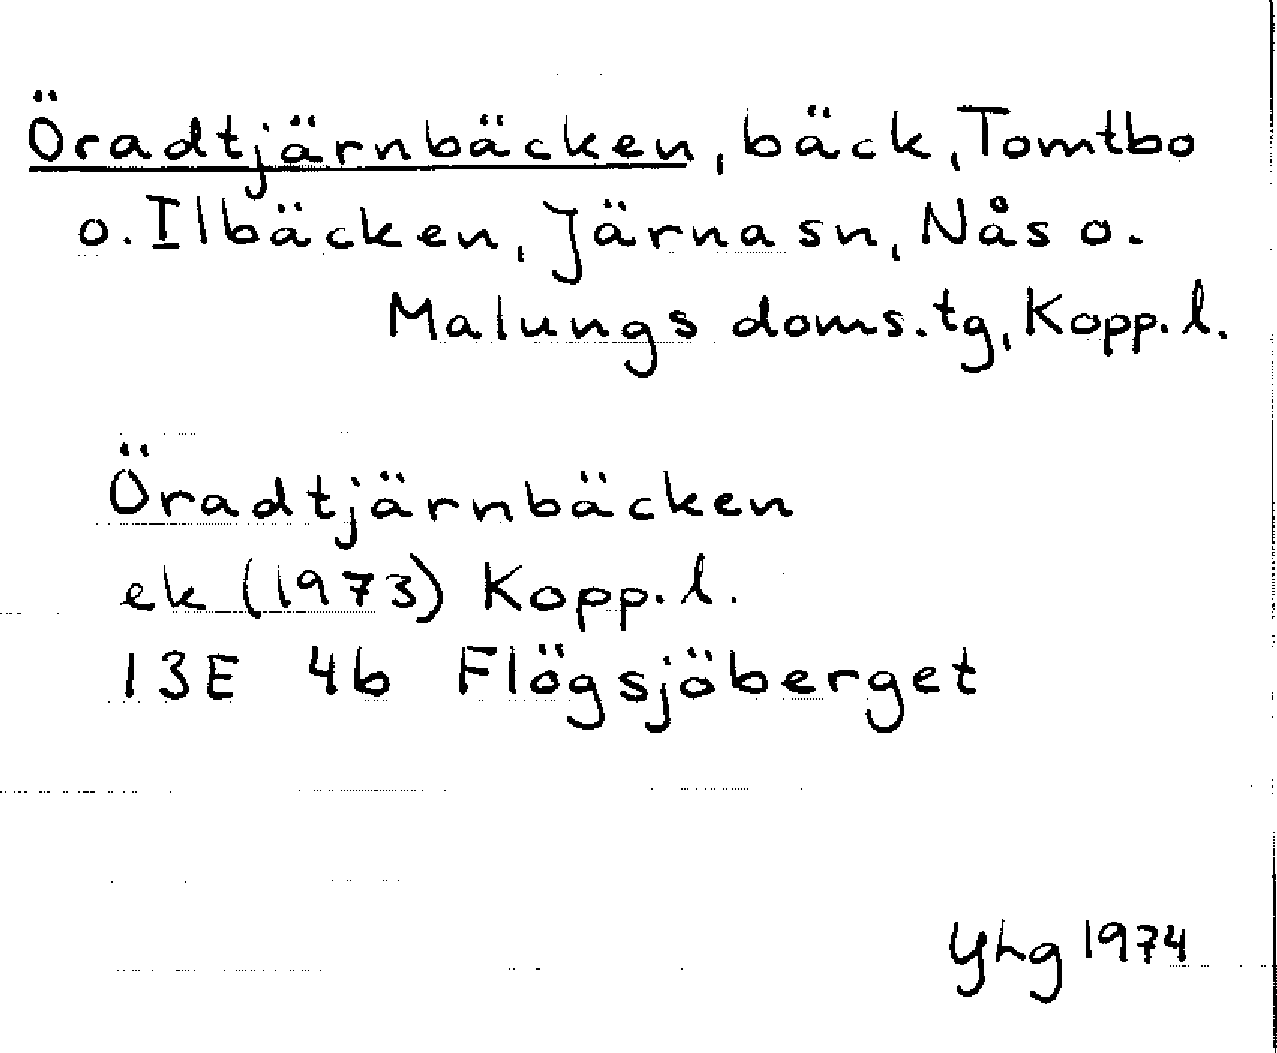 Öradtjärnbäcken, bäck, Tomtbo
o. Ilbäcken, Järnasn, Nås o.
Malungs doms.tg, Kopp.l.
Öradtjärnbäcken
ek (1973) Kopp.l.
13E 4b Flögsjöberget
YHg 1974